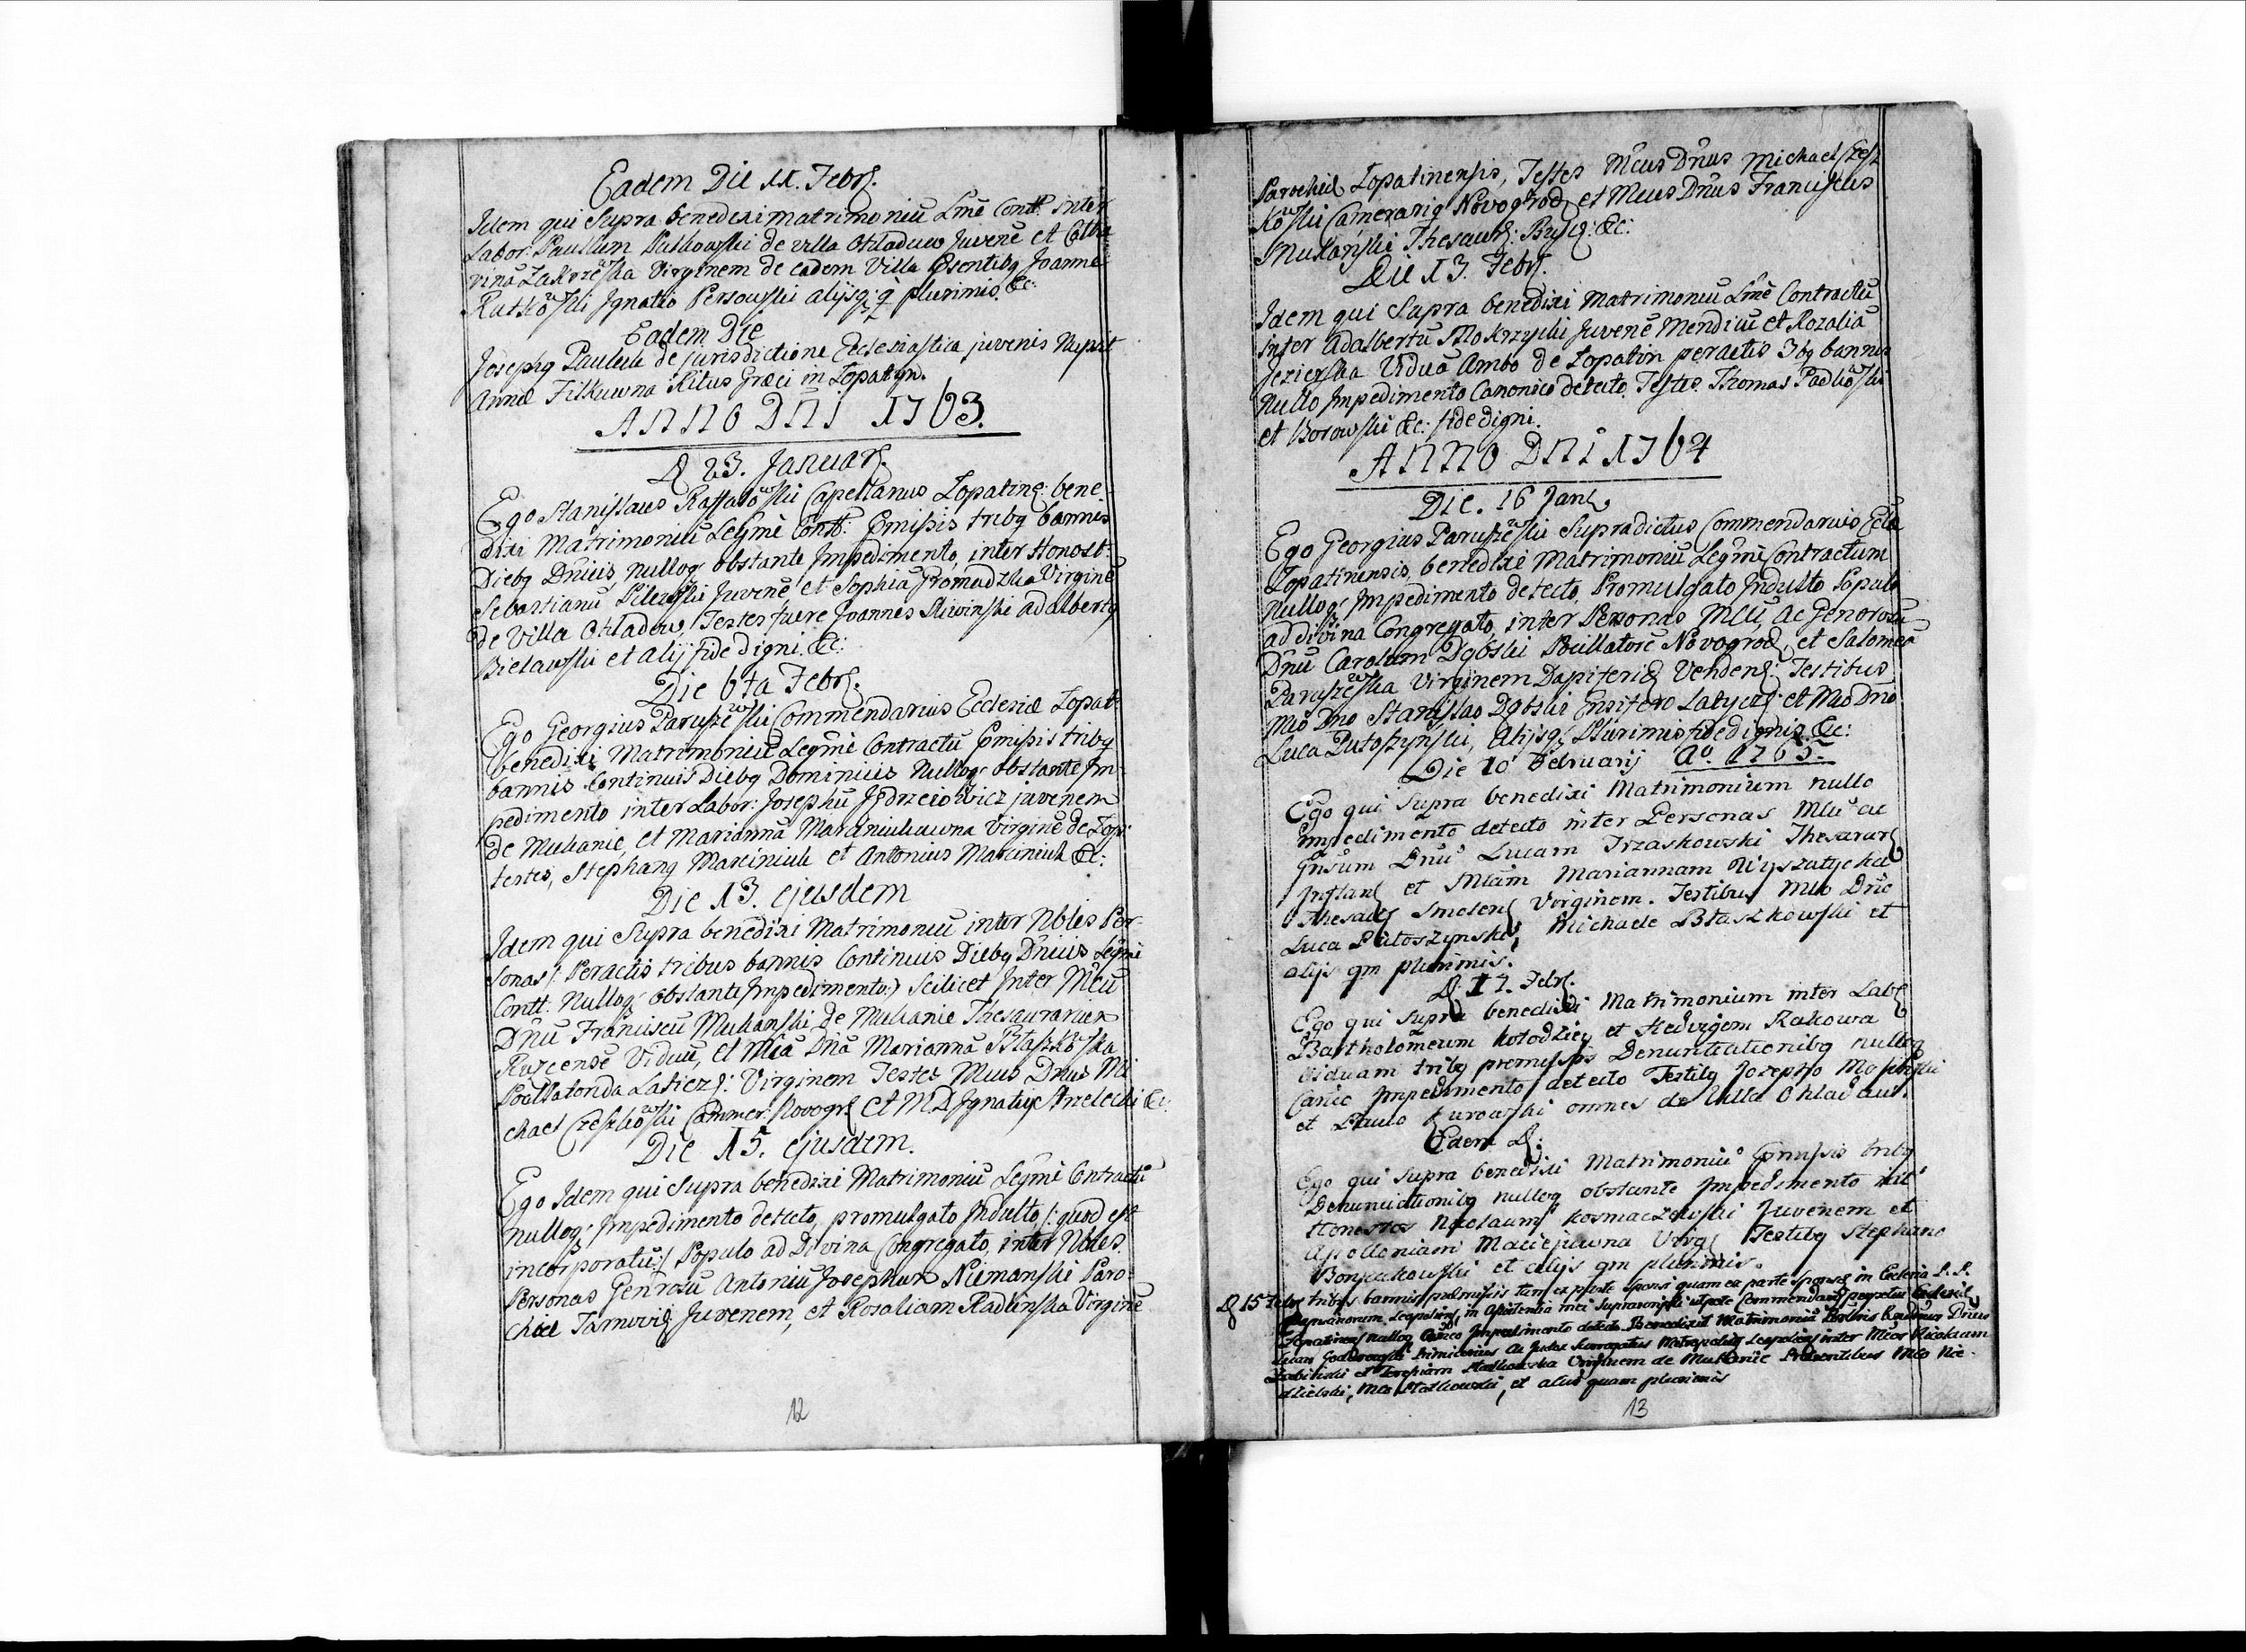 Eadem Die 11. Febr.
Idem qui Supra benedixi matrimoniū Lmè Contt. inter
Labor. Paullum Patkowski de villa Ohladuw Juvenē et
Zakrzewska Virginem de eadem Villa psentibq Joanne
Ratkowski Ignatio Persowski alijsq; q̄ plurimis. &c:
Eadem Die
Josephq Pauluk de jurisdictione Ecclesiastica juvenis Nupsit
Annæ Filkuwna Ritus Græci in Lopatyn.
ANNO DNI 1763.
D 23. Januar.
Ego Stanislaus Raffalowski Capellanus Lopatine: bene-
dixi Matrimoniū Legmè Contt: Pmissis tribq bannis
Diebq Dnicis, nulloq; obstante Impedimento, inter Honost:
Sebastianū Pilewski Juvenē, et Sophiā Gromadzka Virginē
de Villa Ohladow, Testes fuere Joannes Sliwinski Adalbertq
Bielawski et alij fide digni. &c:
Die 6ta Febr.
Ego Georgius Paruszewski Commendarius Ecclesiæ Lopat:
benedixi Matrimoniū Legmè Contractū Pmissis tribq
bannis Continuis Diebq Dominicis Nulloq; obstante Im-
pedimento inter Labor: Josephū Jędrzeiowicz juvenem
de Mukanie, et Mariannā Marciniukuwna Virginē de Lop:
testes, Stephanq Marciniuk et Antonius Marciniuk &c:
Die 13. ejusdem
Idem qui Supra benedixi Matrimoniū inter Nbles Per-
sonas (: Peractis tribus bannis Continuis Diebq Dnicis Legmè
Contt. Nulloq; obstante Impedimento:) Scilicet Inter Mcū
Dnū Franciscū Mukanski de Mukanie Thesaurarium
Viduū, et Mcā Dnā Mariannā Błaszkowska
Laticz: Virginem Testes Mcus Dnus Mi
chael Czeszkowski Cammer: Novogr et M.D. Ignatiq Strzelecki &c:
Die 15. ejusdem.
Ego Idem qui Supra benedixi Matrimoniū Legmè Contractū
nulloq; Impedimento detecto, promulgato Indulto (: quod est
incorporatū:) Populo ad Divina Congregato, inter Nbles.
Personas Genrosū Antoniū Josephum Niemanski Paro-
chiæ Juvenem, et Rosaliam Radlinska Virginē
12
Parochiæ Lopatinensis, Testes Mcus Dnus Michael Czesz
kowski Camerariq Novogrod et Mcus Dnus Franciscus
Mukański Thesaur: &c:
Die 13. Febr.
Idem qui Supra benedixi Matrimoniū Lmè Contractū
inter Adalbertū Mokrzycki Juvenē Mendicū et Rozaliā
Jezierska Viduā Ambo de Lopatin peractis 3bq bannis
Nullo Impedimento Canonico detecto. Testes. Thomas Padkowski
et Borowski &c: fide digni.
ANNO DNI 1764
Die. 16 Jan.
Ego Georgius Paruszewski Supradictus Commendarius Ecclæ
Lopatinensis, benedixi Matrimoniū Legmè Contractum
Nulloq; Impedimento detecto, Promulgato Indulto Populo
ad divina Congregato, inter Personas Mcū, ac Generosū
Dnū Carolum Dąbski Pocillatorē Novogrod, et Salomeā
Paruszewska Virginem Vendens: Testibus
Mco Dno Stanislao Dąbski Ensifero Latycz: et Mco Dno
Luca Putoszynski, Alijsq; Plurimis fide dignis. &c:
Die 10 Februarij Ao. 1765.
Ego qui Supra benedixi Matrimonium nullo
Impedimento detecto inter Personas Mcū ac
Gnsum Dnū Lucam Trzaskowski Thesaurar
Inflan et Mcam Mariannam Wyszatycka
Thesau Smolen Virginem. Testibus Mco Dno
Luca Putoszynski, Michaele Błaszkowski et
alijs qm plurimis.
D. 17. Febr.
Ego qui Supra benedixi Matrimonium inter Lab
Bartholomeum Kołodziey et Hedvigem Rakowa
viduam tribq premissis Denuntiationibq nulloq
Canico Impedimento detecto Testibq Josepho
et Paulo Zurowski omnes de Villa Ohladow.
Eadem D:
Ego qui Supra benedixi Matrimoniū Pmissis tribq
Denunciationibq nulloq obstante Impedimento int
Honestos Nicolaum Kosmaczewski Juvenem et
Apolloniam Maciejuwna Virg Testibq Stephano
et alijs qm plurimis.
D 15 Febr tribus bannis præmissis tum ex parte Sponsi quam ex parte Sponsæ in Ecclesia
Leopolien, in Assistentia mei Suprascripti utpote Commendarij Ecclesiæ
Lopatinens nulloq Canico Impedimento detecto Benedixit Matrimoniū Dnus
Metropolit Leopoliens inter Mcos Nicolaum
et Theresiam Virginem de Mukanie Præsentibus Mco Nie-
dzielski, Mco et alijs quam plurimis
13